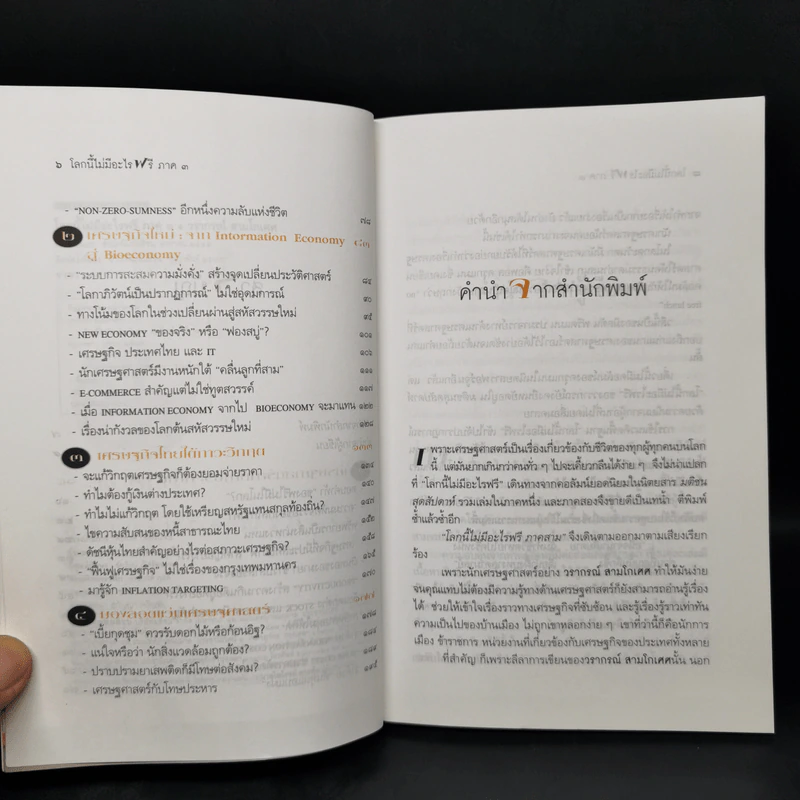 ๖ โลกนี้ไม่มีอะไรฟรี ภาค ๓
- "NON-ZERO-SUMNESS" อีกหนึ่งความลับแห่งชีวิต ๗๘
๒ เศรษฐกิจไทย : จาก Information Economy ๘๓
สู่ Bioeconomy
- "ระบบการสะสมความมั่งคั่ง" สร้างจุดเปลี่ยนประวัติศาสตร์ ๘๔
- "โลกาภิวัตน์เป็นปรากฏการณ์" ไม่ใช่อุดมการณ์ ๙๐
- ทางโน้มของโลกในช่วงเปลี่ยนผ่านสู่สหัสวรรษใหม่ ๙๕
- NEW ECONOMY "ของจริง" หรือ "ฟองสบู่"? ๑๐๑
- เศรษฐกิจ ประเทศไทย และ IT ๑๐๖
- นักเศรษฐศาสตร์มีงานหนักใต้ "คลื่นลูกที่สาม" ๑๑๑
- E-COMMERCE สำคัญแต่ไม่ใช่ทูตสวรรค์ ๑๑๗
- เมื่อ INFORMATION ECONOMY จากไป BIOECONOMY จะมาแทน ๑๒๒
- เรื่องน่ากังวลของโลกต้นสหัสวรรษใหม่ ๑๒๘
๓ เศรษฐกิจไทยใต้ภาวะวิกฤต
- จะแก้วิกฤตเศรษฐกิจก็ต้องยอมจ่ายราคา
- ทำไมต้องกู้เงินต่างประเทศ?
- ทำไมไม่แก้วิกฤต โดยใช้เหรียญสหรัฐแทนสกุลท้องถิ่น? ๑๔๗
- ไขความสับสนของหนี้สาธารณะไทย ๑๕๒
- ดัชนีหุ้นไทยสำคัญอย่างไรต่อสภาวะเศรษฐกิจ?
- "ฟื้นฟูเศรษฐกิจ" ไม่ใช่เรื่องของกรุงเทพมหานคร ๑๖๕
- มารู้จัก INFLATION TARGETING ๑๗๐
๔ มองลอดแว่นเศรษฐศาสตร์
- "เบี้ยกุดชุม" ควรรับดอกไม้หรือก้อนอิฐ?
- แน่ใจหรือว่า นักสิ่งแวดล้อมถูกต้อง?
- ปราบปรามยาเสพติดก็มีโทษต่อสังคม?
- เศรษฐศาสตร์กับโทษประหาร
คำนำ จากสำนักพิมพ์
เพราะเศรษฐศาสตร์เป็นเรื่องเกี่ยวข้องกับชีวิตของทุกผู้ทุกคนบนโลก
นี้ แต่มันยากเกินกว่าคนทั่ว ๆ ไปจะเคี้ยวกลืนได้ง่าย ๆ จึงไม่น่าแปลก
ที่ "โลกนี้ไม่มีอะไรฟรี" เดินทางจากคอลัมน์ยอดนิยมในนิตยสาร มติชน
สุดสัปดาห์ รวมเล่มในภาคหนึ่ง และภาคสองจึงขายดีเป็นเทน้ำ ตีพิมพ์
ซ้ำแล้วซ้ำอีก
"โลกนี้ไม่มีอะไรฟรี ภาคสาม" จึงเดินตามออกมาตามเสียงเรียก
ร้อง
เพราะนักเศรษฐศาสตร์อย่าง วรากรณ์ สามโกเศศ ทำให้มันง่าย
จนคุณแทบไม่ต้องมีความรู้ทางด้านเศรษฐศาสตร์ก็ยังสามารถอ่านรู้เรื่อง
ได้ ช่วยให้เข้าใจเรื่องราวทางเศรษฐกิจที่ซับซ้อน และรู้เรื่องรู้ราวเท่าทัน
ความเป็นไปของบ้านเมือง ไม่ถูกเขาหลอกง่าย ๆ เขาที่ว่านี้ก็คือนักการ
เมือง ข้าราชการ หน่วยงานที่เกี่ยวข้องกับเศรษฐกิจของประเทศทั้งหลาย
ที่สำคัญ ก็เพราะลีลาการเขียนของวรากรณ์ สามโกเศศนั้น นอก